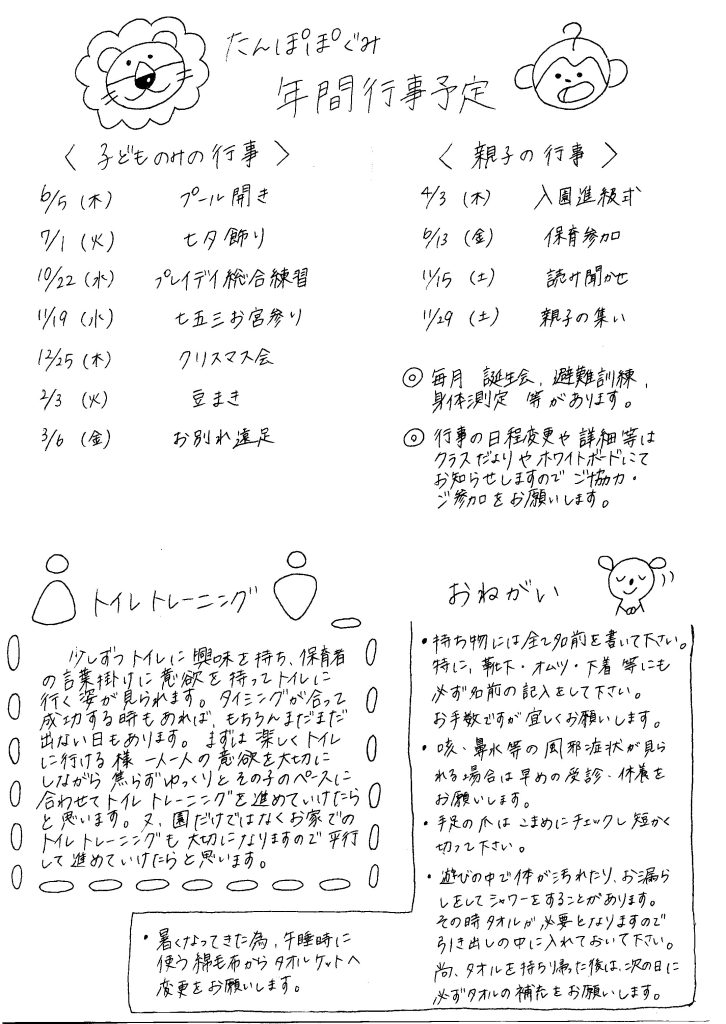 たんぽぽぐみ
年間行事予定
〈 子どものみの行事 〉
6/5 (木) プール開き
7/1 (火) 七夕飾り
10/22 (水) プレイデイ総合練習
11/19 (水) 七五三お宮参り
12/25 (木) クリスマス会
2/3 (火) 豆まき
3/6 (金) お別れ遠足
〈 親子の行事 〉
4/3 (木) 入園進級式
6/13 (金) 保育参加
11/15 (土) 読み聞かせ
11/29 (土) 親子の集い
◎ 毎月 誕生会、避難訓練、
身体測定 等があります。
◎ 行事の日程変更や詳細等は
クラスだよりやホワイトボードにて
お知らせしますので ご協力・
ご参加をお願いします。
トイレトレーニング
少しずつトイレに興味を持ち、保育者
の言葉掛けに意欲を持ってトイレに
行く姿が見られます。タイミングが合って
成功する時もあれば、もちろんまだまだ
出ない日もあります。まずは楽しくトイレ
に行ける様 一人一人の意欲を大切に
しながら焦らずゆっくりとその子のペースに
合わせてトイレトレーニングを進めていけたら
と思います。又、園だけではなくお家での
トイレトレーニングも大切になりますので平行
して進めていけたらと思います。
おねがい
・持ち物には全て名前を書いて下さい。
特に、靴下・オムツ・下着 等にも
必ず名前の記入をして下さい。
お手数ですが宜しくお願いします。
・咳、鼻水等の風邪症状が見ら
れる場合は早めの受診・休養を
お願いします。
・手足の爪はこまめにチェックし短かく
切って下さい。
・遊びの中で体が汚れたり、お漏ら
しをしてシャワーをすることがあります。
その時タオルが必要となりますので
引き出しの中に入れておいて下さい。
尚、タオルを持ち帰った後は、次の日に
必ずタオルの補充をお願いします。
・暑くなってきた為、午睡時に
使う綿毛布からタオルケットへ
変更をお願いします。